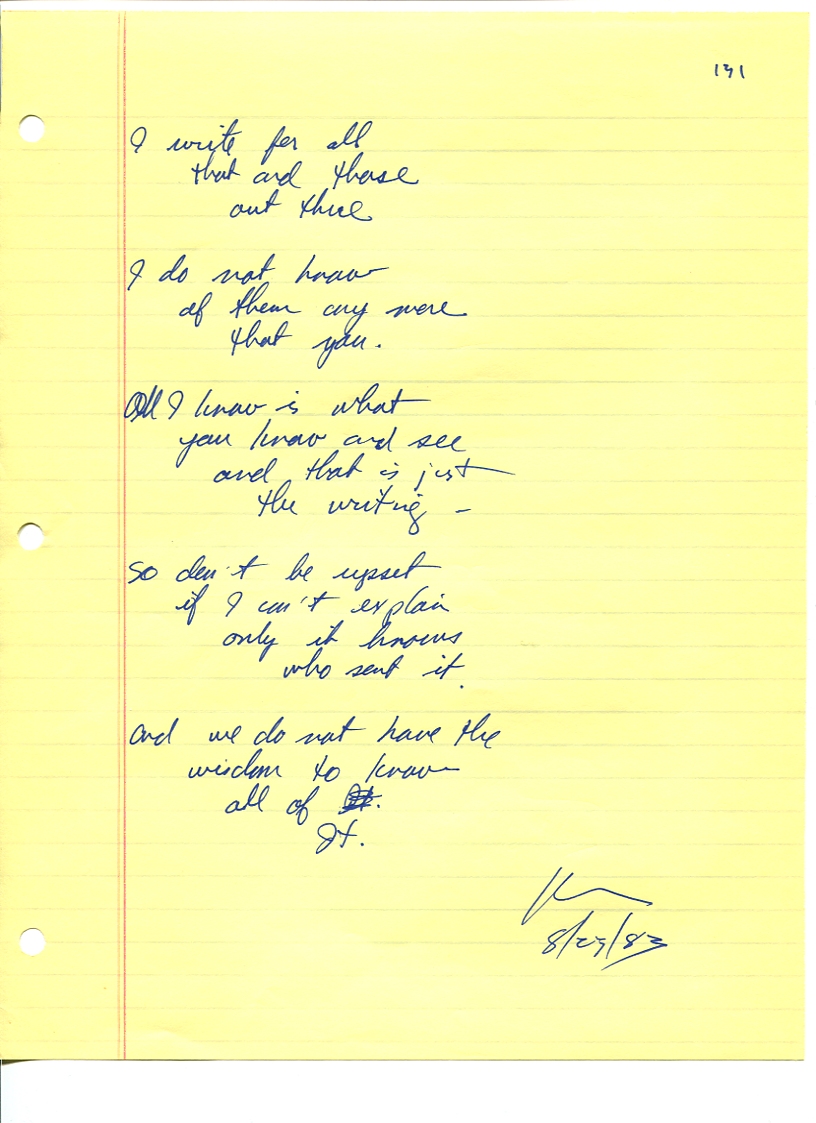 131
I write for all
that and those
out there
I do not know
of them any more
that you.
All I know is what
you know and see
and that is just
the writing –
So don't be upset
if I can't explain
only it knows
who sent it.
And we do not have the
wisdom to know
all of
It.
8/29/83